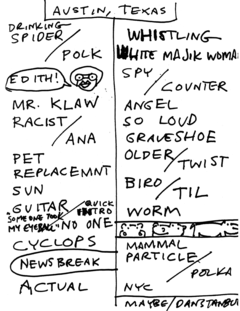 AUSTIN, TEXAS
DRINKING
SPIDER/
POLK
EDITH!
MR. KLAW
RACIST/
ANA
PET
REPLACEMNT
SUN
GUITAR/QUICK INTRO
"SOMEONE TOOK MY EYEBALL" NO ONE
CYCLOPS
NEWSBREAK
ACTUAL
WHISTLING
WHITE MAJIK WOMA
SPY/
COUNTER
ANGEL
SO LOUD
GRAVESHOE
OLDER/
TWIST
BIRD/
TIL
WORM
MAMMAL
PARTICLE/
POLKA
NYC
MAYBE/